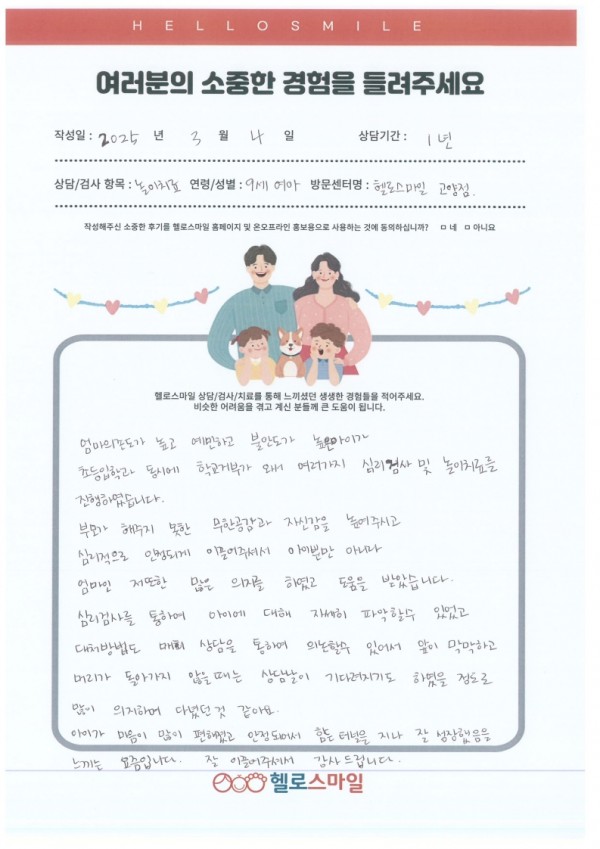 HELLOSMILE
여러분의 소중한 경험을 들려주세요
작성일 : 2025 년 3 월 4 일 상담기간 : 1년
상담/검사 항목 : 놀이치료 연령/성별 : 9세 여아 방문센터명 : 헬로스마일 고양점.
작성해주신 소중한 후기를 헬로스마일 홈페이지 및 온오프라인 홍보용으로 사용하는 것에 동의하십니까? ㅁ 네 ㅁ 아니요
헬로스마일 상담/검사/치료를 통해 느끼셨던 생생한 경험들을 적어주세요.
비슷한 어려움을 겪고 계신 분들께 큰 도움이 됩니다.
엄마의존도가 높고 예민하고 불안도가 높은아이가
초등입학과 동시에 학교거부가 와서 여러가지 심리검사 및 놀이치료를
진행하였습니다.
부모가 해주지 못한 무한공감과 자신감을 높여주시고
심리적으로 안정되게 이끌어주셔서 아이뿐만 아니라
엄마인 저또한 많은 의지를 하였고 도움을 받았습니다.
심리검사를 통하여 아이에 대해 자세히 파악할수 있었고
대처방법도 매회 상담을 통하여 의논할수 있어서 앞이 막막하고
머리가 돌아가지 않을때는 상담날이 기다려지기도 하였을 정도로
많이 의지하며 다녔던것 같아요.
아이가 마음이 많이 편해졌고 안정되어서 힘든 터널을 지나 잘 성장했음을
느끼는 요즘입니다. 잘 이끌어주셔서 감사드립니다.
헬로스마일